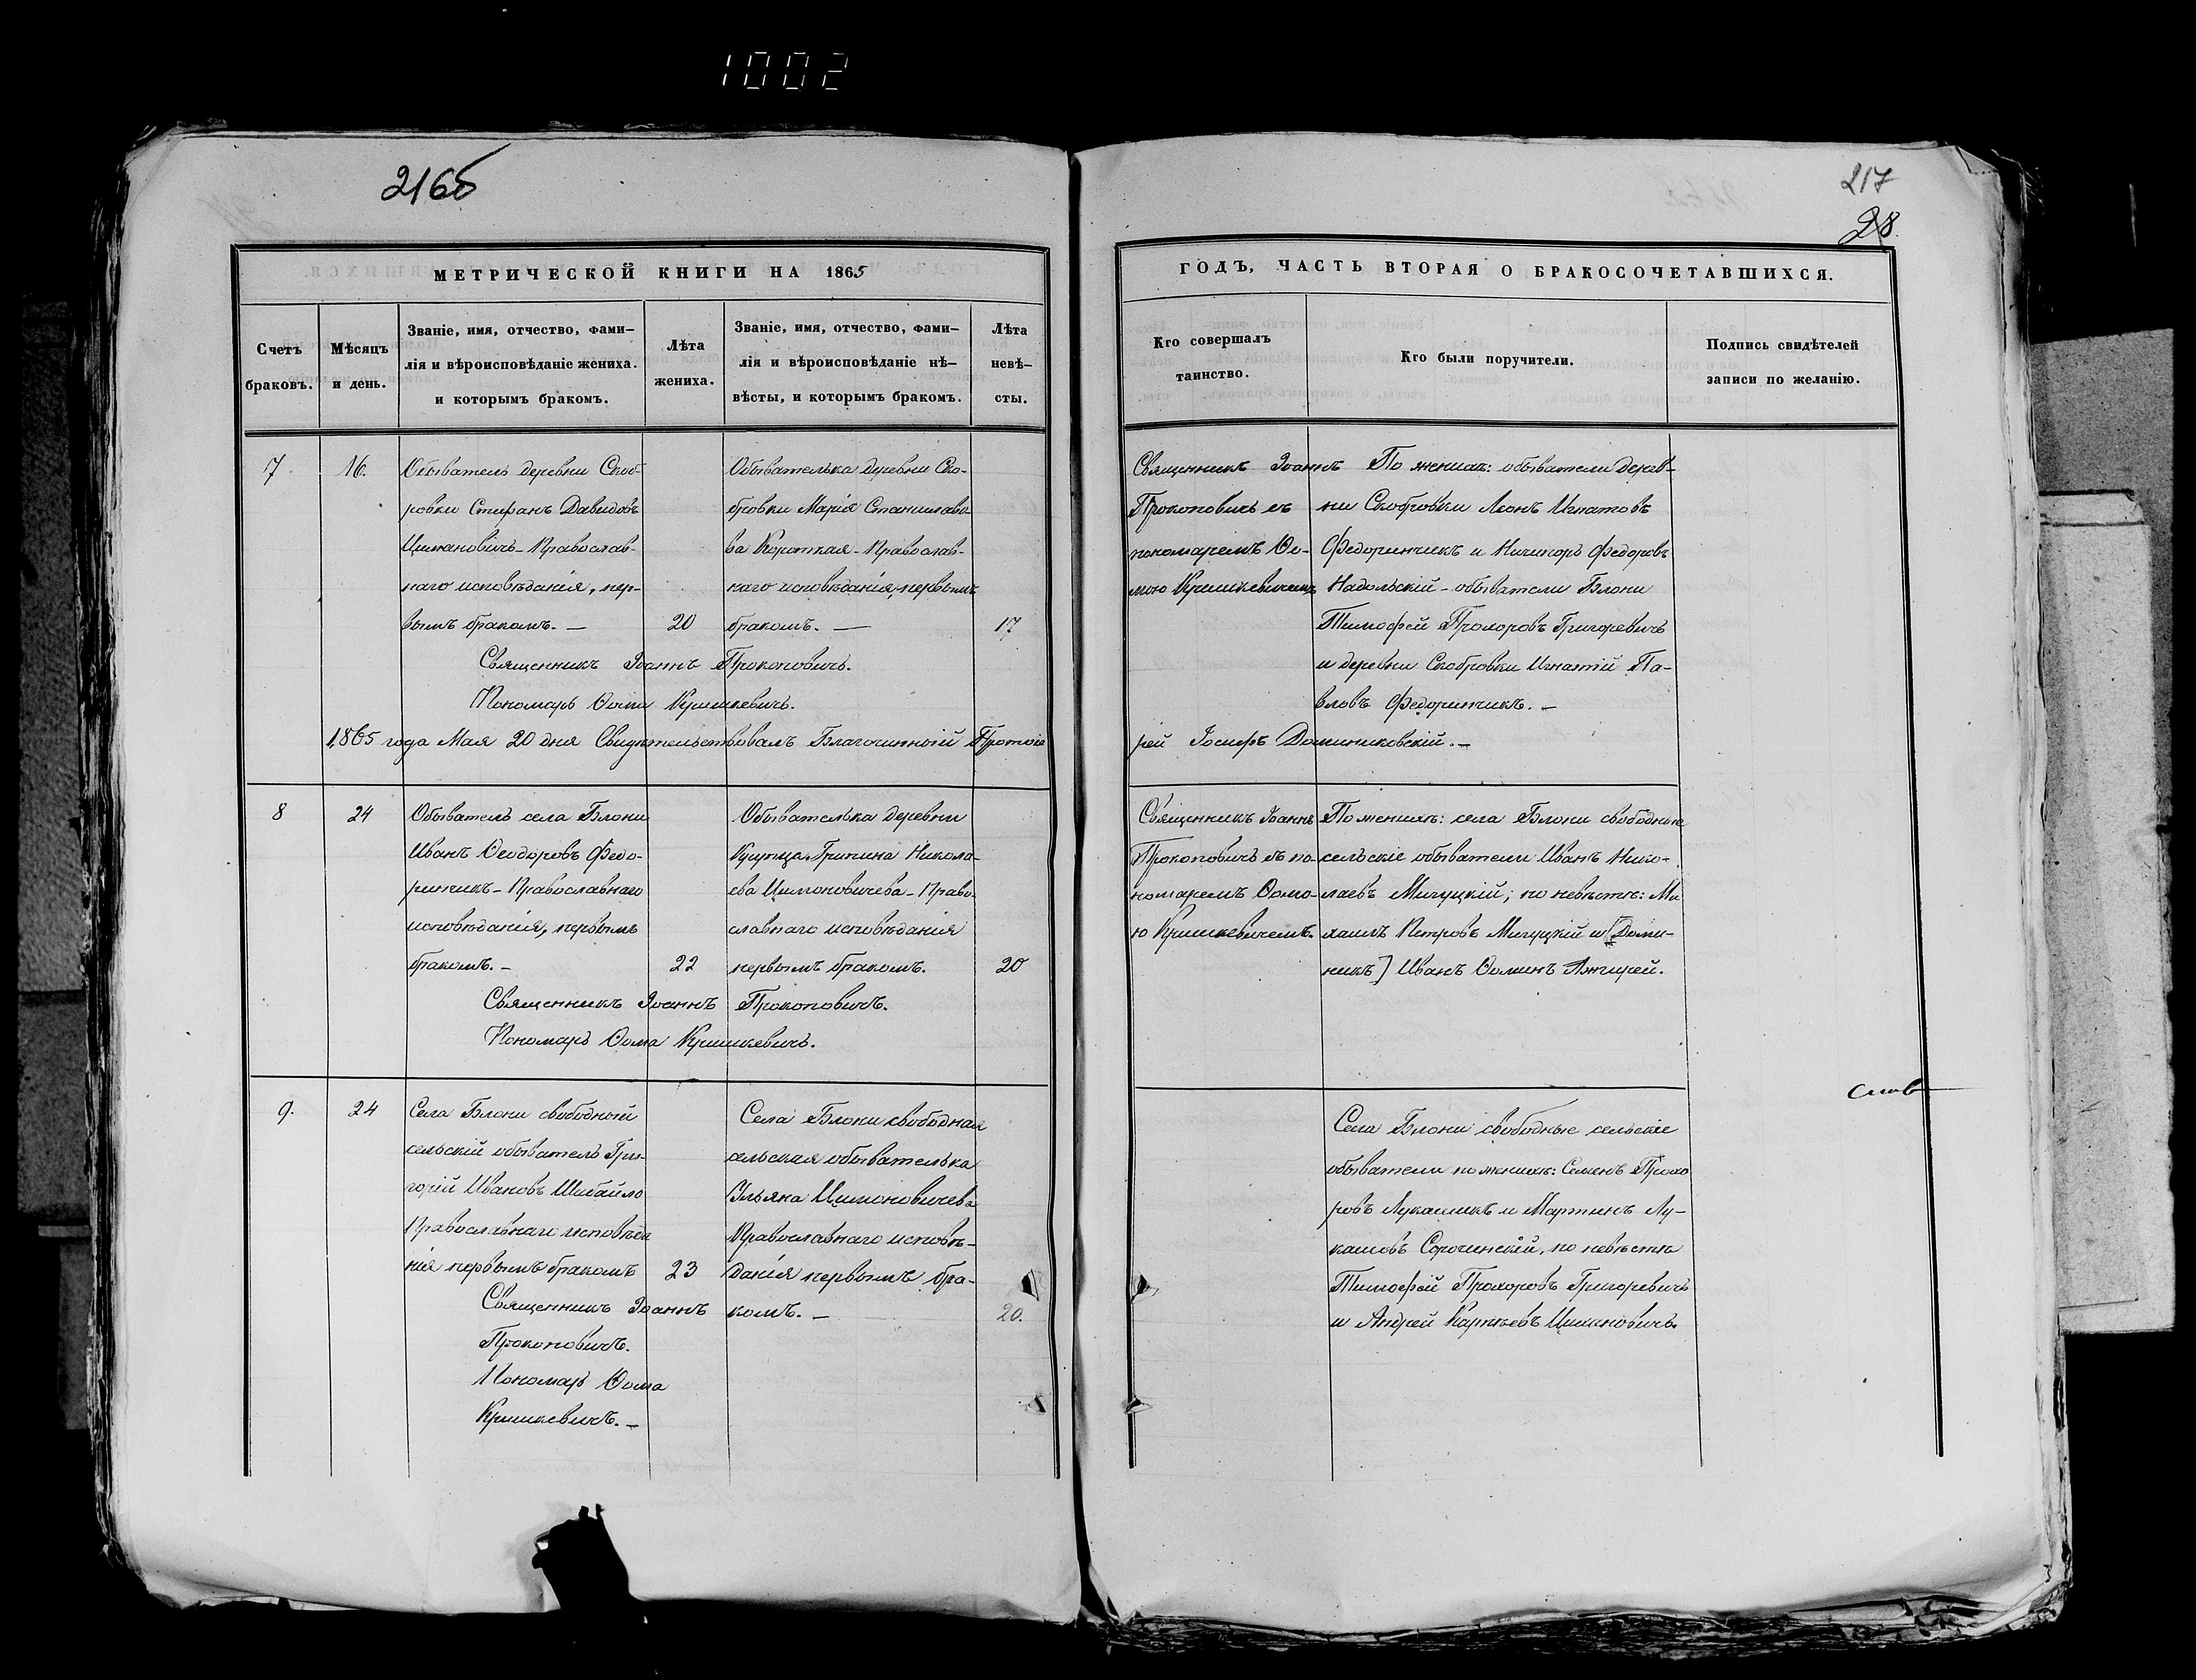 1002
216б
МЕТРИЧЕСКОЙ КНИГИ НА 1865
Счетъ браковъ.
Мѣсяцъ и день.
Званіе, имя, отчество, фами-
лія и вѣроисповѣданіе жениха.
и которымъ бракомъ.
Лѣта
жениха.
Званіе, имя, отчество, фами-
лія и вѣроисповѣданіе нѣ-
вѣсты, и которымъ бракомъ.
Лѣта
невѣ-
сты.
7.
16.
Обыватель деревни Скоб-
ровки Стефанъ Давидовъ
Цимановичъ - Православ-
наго исповѣданія, пер-
вымъ бракомъ. —
20
Обывателька деревни Ско-
бровки Марія Станиславо-
ва Короткая - Православ-
наго исповѣданія, первымъ
бракомъ. —
17
Священникъ Іоаннъ Прокоповичъ.
Пономарь Ѳома Кришкевичъ.
1865 года Мая 20 дня Свидѣтельствовалъ Благочинный Протоіе
8
24
Обыватель села Блони
Иванъ Ѳеодоровъ Федо-
ринчикъ - Православнаго
исповѣданія, первымъ
бракомъ. -
22
Обывателька деревни
Грипина Никола-
ева Цимоновичева - Право-
славнаго исповѣданія
первымъ бракомъ.
20
Священникъ Іоаннъ Прокоповичъ.
Пономарь Ѳома Кришкевичъ.
9.
24
Села Блони свободный
сельскій обыватель Гри-
горій Ивановъ Шибайло
Православнаго исповѣда
нія первымъ бракомъ
23
Села Блони свободная
сельская обывателька
Ульяна Цимоновичева
Православнаго исповѣ-
данія первымъ бра-
комъ. —
20.
Священникъ Іоаннъ
Прокоповичъ.
Пономарь Ѳома
Кришкевичъ. —
217
28.
ГОДЪ, ЧАСТЬ ВТОРАЯ О БРАКОСОЧЕТАВШИХСЯ.
Кто совершалъ
таинство.
Кто были поручители.
Подпись свидѣтелей
записи по желанію.
Священникъ Іоаннъ
Прокоповичъ съ
пономаремъ Ѳо-
мою Кришкевичемъ
По женихѣ: обыватели дерев-
ни Скобровки Леонъ Игнатовъ
Федоринчикъ и Ничипоръ Федоровъ
Надольскій - обыватели Блони
Тимофей Прохоровъ Григоревичъ
и деревни Скобровки Игнатій Па-
вловъ Федоринчикъ. —
рей Іосифъ Доминиковскій. —
Священникъ Іоаннъ
Прокоповичъ съ по-
номаремъ Ѳомо-
ю Кришкевичемъ.
По женихѣ: села Блони свободные
сельскіе обыватели Иванъ Нико-
лаевъ Мигуцкій; по невѣстѣ: Ми
хаилъ Петровъ Мигуцкій и [Доми-
никъ] Иванъ Ѳоминъ Ажгирей.
Села Блони свободные сельскіе
обыватели по женихѣ: Семенъ Прохо
ровъ Лукашикъ и Мартинъ Лу-
кашовъ Сорочинскій, по невѣстѣ
Тимофей Прохоровъ Григоревичъ
и Андрей Карнѣевъ Цимановичъ.